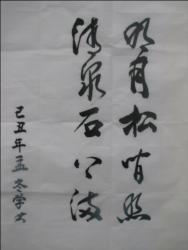 明月松间照
清泉石上流
己丑年孟冬